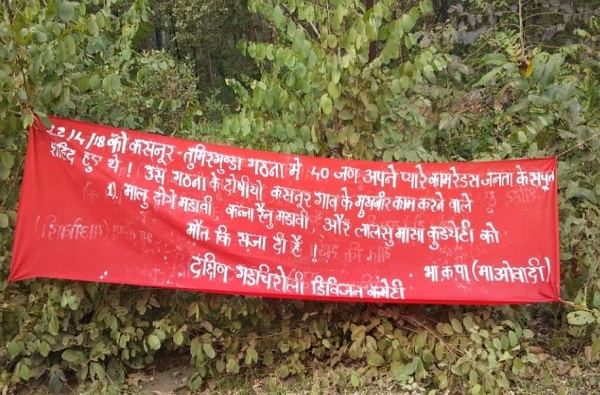 22/4/18 को कसनूर - तुमिरगुण्डा गठना में 40 जण अपने प्यारे कामरेडस जनता के सपूत
शहिद हुए थे ! उस गठना के दोषीयो कसनूर गाव के मुखबीर काम करने वाले
1) मालु दोगे मडावी, कन्ना रैनु मडावी, और लालसु मासा कुडयेटी को
मौत कि सजा दी हैं !
दक्षिण गडचिरोली डिविजन कमेटी भा.क.पा (माओवादी)